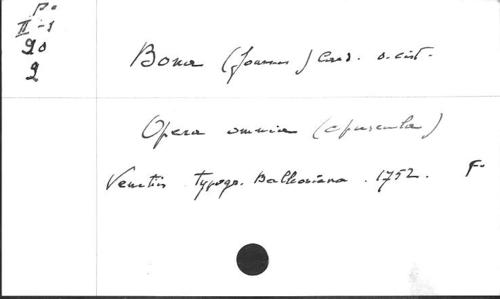 P.
II-1
20
2
Bona (Joannes) Card. o. cist.
Opera omnia (opuscula)
Venetiis typogr. Balleoniana. 1752. F.